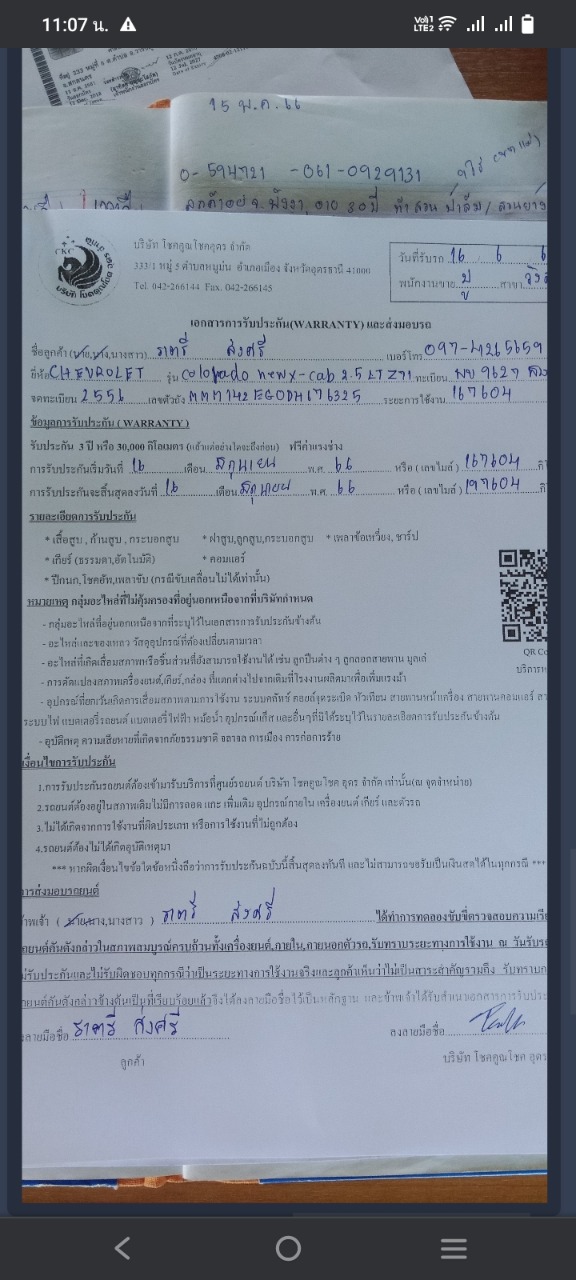 11:07 น.
15 พ.ค. 66
0-594721 -061-0929131
ลูกค้าอยู่ จ.พังงา, อายุ 30 ปี ทำสวน ปาล์ม/สวนยาง
บริษัท โชคคูณโชคอุดร จำกัด
333/1 หมู่ 5 ตำบลหมูม่น อำเภอเมือง จังหวัดอุดรธานี 41000
Tel. 042-266144 Fax. 042-266145
วันที่รับรถ 16 / 6 / 6
พนักงานขาย ปู สาขา
เอกสารการรับประกัน(WARRANTY) และส่งมอบรถ
ชื่อลูกค้า (นาย,นาง,นางสาว) ราตรี ส่งศรี เบอร์โทร 097-4265659
ยี่ห้อ CHEVROLET รุ่น colorado new x-cab 2.5 LT Z71 ทะเบียน 9627
จดทะเบียน 2556 เลขตัวถัง MMM142EG0DH176325 ระยะการใช้งาน 167604
ข้อมูลการรับประกัน ( WARRANTY )
รับประกัน 3 ปี หรือ 30,000 กิโลเมตร (แล้วแต่อย่างใดจะถึงก่อน) ฟรีค่าแรงช่าง
การรับประกันเริ่มวันที่ 16 เดือน มิถุนายน พ.ศ. 66 หรือ ( เลขไมล์ ) 167604 กิ
การรับประกันจะสิ้นสุดลงวันที่ 16 เดือน มิถุนายน พ.ศ. 66 หรือ ( เลขไมล์ ) 197604 กิ
รายละเอียดการรับประกัน
* เสื้อสูบ , ก้านสูบ , กระบอกสูบ * ฝาสูบ,ลูกสูบ,กระบอกสูบ * เพลาข้อเหวี่ยง, ชาร์ป
* เกียร์ (ธรรมดา,อัตโนมัติ) * คอมแอร์
* ปีกนก,โชคอัพ,เพลาขับ (กรณีขับเคลื่อนไม่ได้เท่านั้น)
หมายเหตุ กลุ่มอะไหล่ที่ไม่คุ้มครองที่อยู่นอกเหนือจากที่บริษัทกำหนด
- กลุ่มอะไหล่ที่อยู่นอกเหนือจากที่ระบุไว้ในเอกสารการรับประกันข้างต้น
- อะไหล่และของเหลว วัสดุอุปกรณ์ที่ต้องเปลี่ยนตามเวลา
- อะไหล่ที่เกิดเสื่อมสภาพหรือชิ้นส่วนที่ยังสามารถใช้งานได้ เช่น ลูกปืนต่าง ๆ ลูกลอกสายพาน มูเล่
- การดัดแปลงสภาพเครื่องยนต์,เกียร์,กล่อง ที่แตกต่างไปจากเดิมที่โรงงานผลิตมาเพื่อเพิ่มแรงม้า
- อุปกรณ์ที่ยกเว้นเกิดการเสื่อมสภาพตามการใช้งาน ระบบคลัทช์ คอยล์จุดระเบิด หัวเทียน สายพานหน้าเครื่อง สายพานคอมแอร์ สา
ระบบไฟ แบตเตอรี่รถยนต์ แบตเตอรี่ไฟฟ้า หม้อน้ำ อุปกรณ์แก๊ส และอื่นๆที่มิได้ระบุไว้ในรายละเอียดการรับประกันข้างต้น
- อุบัติเหตุ ความเสียหายที่เกิดจากภัยธรรมชาติ จลาจล การเมือง การก่อการร้าย
QR Co
เงื่อนไขการรับประกัน
1.การรับประกันรถยนต์ต้องเข้ามารับบริการที่ศูนย์รถยนต์ บริษัท โชคคูณโชค อุดร จำกัด เท่านั้น(ณ จุดจำหน่าย)
2.รถยนต์ต้องอยู่ในสภาพเดิมไม่มีการถอด แกะ เพิ่มเติม อุปกรณ์ภายใน เครื่องยนต์ เกียร์ และตัวรถ
3.ไม่ได้เกิดจากการใช้งานที่ผิดประเภท หรือการใช้งานที่ไม่ถูกต้อง
4.รถยนต์ต้องไม่ได้เกิดอุบัติเหตุมา
*** หากผิดเงื่อนไขข้อใดข้อหนึ่งถือว่าการรับประกันฉบับนี้สิ้นสุดลงทันที และไม่สามารถขอรับเป็นเงินสดได้ในทุกกรณี ***
การส่งมอบรถยนต์
าพเจ้า ( นาย,นาง,นางสาว ) ราตรี ส่งศรี ได้ทำการทดลองขับขี่ตรวจสอบความเรี
ถยนต์คันดังกล่าวในสภาพสมบูรณ์ครบถ้วนทั้งเครื่องยนต์,ภายใน,ภายนอกตัวรถ,รับทราบระยะทางการใช้งาน ณ วันรับรถ
ม่รับประกันและไม่รับผิดชอบทุกกรณีว่าเป็นระยะทางการใช้งานจริงและลูกค้าเห็นว่าไม่เป็นสาระสำคัญรวมถึง รับทราบ
ยนต์คันดังกล่าวข้างต้นเป็นที่เรียบร้อยแล้วจึงได้ลงลายมือชื่อไว้เป็นหลักฐาน และข้าพเจ้าได้รับสำเนาเอกสารการรับประ
งลายมือชื่อ ราตรี ส่งศรี ลงลายมือชื่อ
ลูกค้า บริษัท โชคคูณโชค อุดร